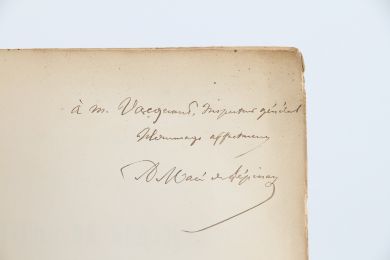 à M. Vacquant, Inspecteur général
Hommage affectueux
A Macé de Lépinay